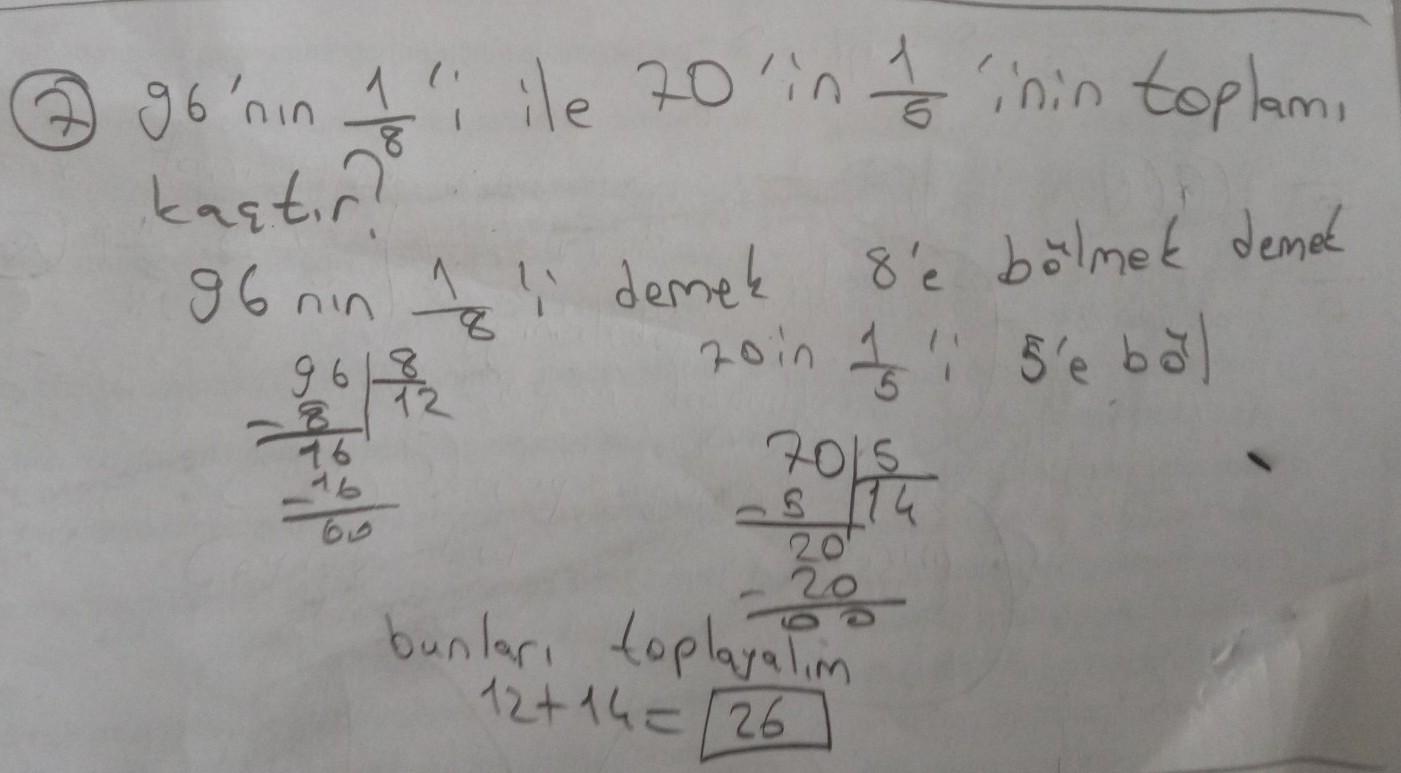 7 96'nın 1/8 'i ile 70'in 1/5 'inin toplamı
kaçtır?
96 nın 1/8 'i demek 8'e bölmek demek
70in 1/5 'i 5'e böl
96 | 8
- 8 | 12
16
- 16
00
70 | 5
- 5 | 14
20
- 20
00
bunları toplayalım
12+14= 26